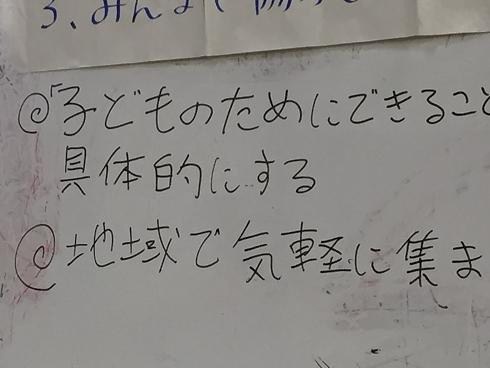 3、みんなで
@「子どものためにできること
具体的にする
@地域で気軽に集ま